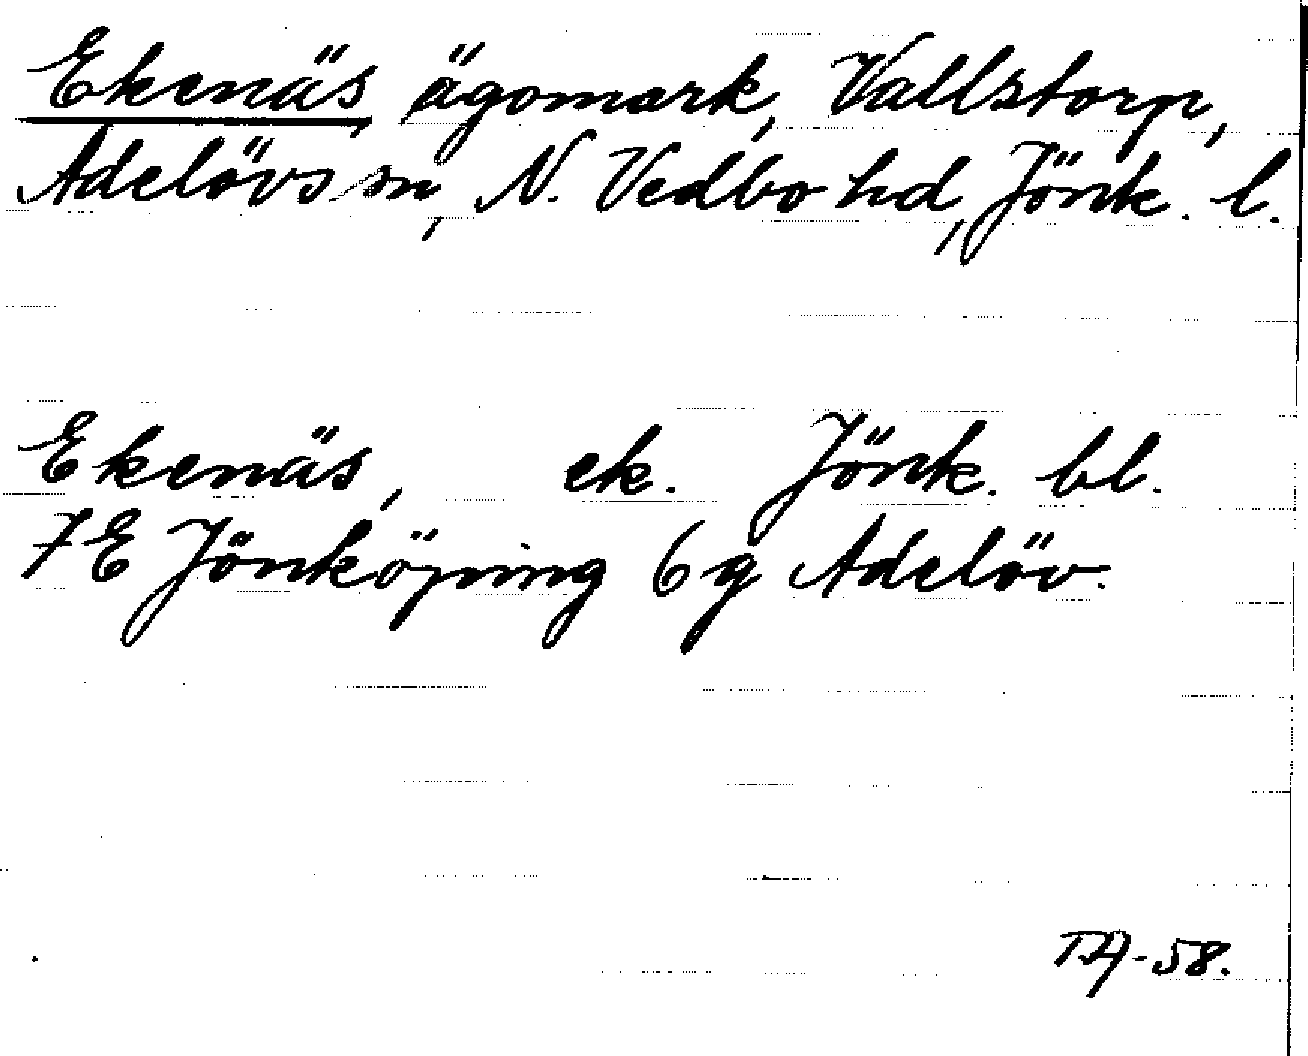 Ekenäs, ägomark, Vallstorp,
Adelövs sn, N. Vedbo hd, Jönk. l.
Ekenäs, ek. Jönk. bl.
7E Jönköping 6g Adelöv.
-58.